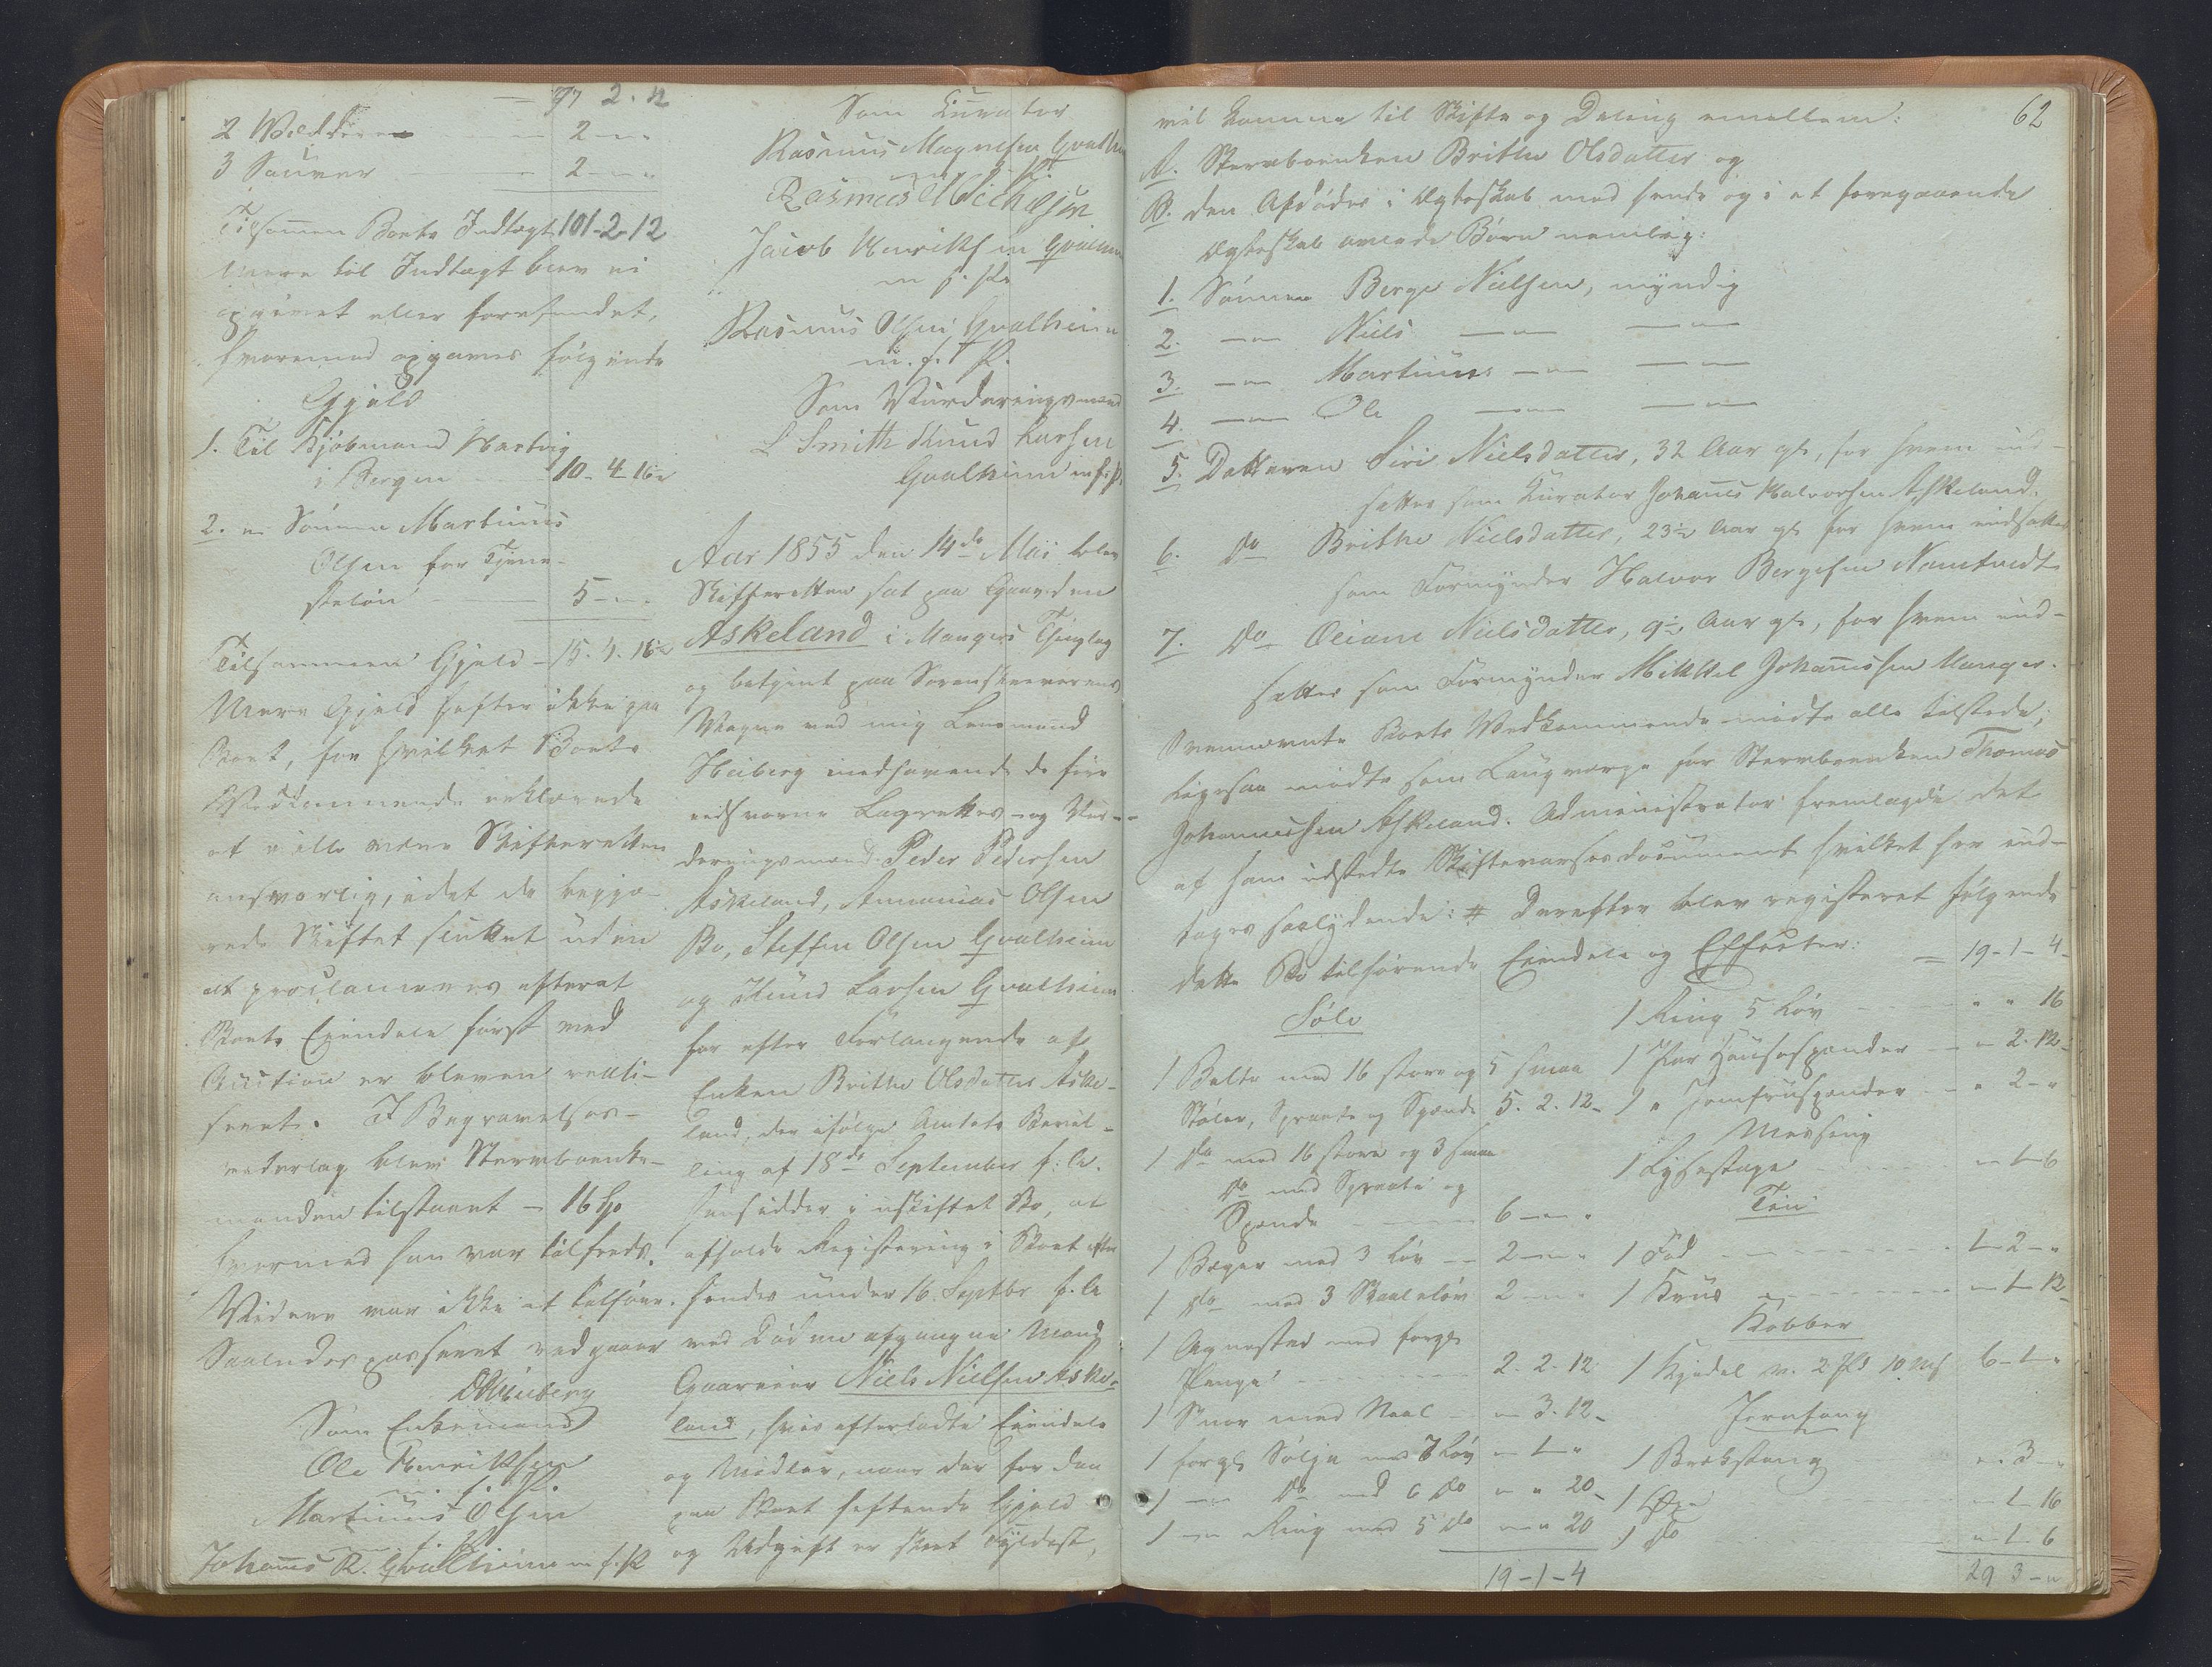 — 97 2. 12
2 Væddere — 2 – " "
3 Sauver — 2 – " "
Tilsammen Boets Indtægt 101-2-12
Mere til Indtægt blev ei
opgivet eller forefundet,
hvoremod opgaves følgende
Gjæld
1. Til Kjøbmand Hartvig
i Bergen — 10-4-16
2. " Sønnen Martinus
Olsen for Tjene-
steløn — 5 – " "
Tilsammen Gjæld — 15. 4. 16
Mere Gjæld hefter ikke paa
Boet, for hvilket Boets
Vedkommende erklærede
at ville være Skifteretten
ansvarlig, idet de begjæ-
rede Skiftet sluttet uden
at proclameres efterat
Boets Eiendele først ved
Auction er bleven reali-
seret. I Begravelses-
vederlag blev Stervboenke-
manden tilstaaet — 16 Sp
hvormed han var tilfreds.
Videre var ikke at tilføre.
Saaledes passeret vedgaaer
Heiberg
Som Enkemand
Ole Henriksen
m. f. P.
Martinus Olsen
m. f. P.
Johannes R. Gvalheim m. f. P
Som Curator
Rasmus Magnesen Gvalheim
m. f. P.
Rasmus Michelsen
Jacob Henriksen Gvalheim
m. f. P.
Rasmus Olsen Gvalheim
m. f. P.
Som Vurderingsmænd
L Smith Knud Larsen
Gvalheim m f. P.
Aar 1855 den 14de Mai blev
Skifteretten sat paa Gaarden
Askeland i Mangers Thinglag
og betjent paa Sorenskriverens
Vegne ved mig Lensmand
Heiberg medhavende de fire
edsvorne Lagrettes- og Vur-
deringsmænd Peder Pedersen
Askeland, Ananias Olsen
Bø, Steffen Olsen Gvalheim
og Knud Larsen Gvalheim
for efter Forlangende af
Enken Brithe Olsdatter Aske-
land, der ifølge Amtets Bevil-
ling af 18de September f: A.
hensidder i uskiftet Bo, at
afholde Registrering i Boet efter
hendes under 16. Septbr f. A
ved Døden afgangne Mand
Gaardeier Niels Nielsen Aske-
land, hvis efterladte Eiendele
og Midler, naar der for den
paa Boet heftende Gjæld
og Udgift er skeet Fyldest,
62
vil komme til Skifte og Deling emellem:
A. Stervboenken Brithe Olsdatter og
B. den Afdødes i Ægteskab med hende og i et foregaaende
Ægteskab avlede Børn nemlig:
1. Sønnen Berge Nielsen, myndig
2. — " — Niels — " — — " —
3. — " — Martinus — " — — " —
4. — " — Ole — " — — " —
5. Datteren Siri Nielsdatter, 32 Aar gl, for hvem ind-
sattes som Curator Johannes Halvorsen Askeland.
6. do Brithe Nielsdatter, 23½ Aar gl for hvem indsattes
som Formynder Halvor Bergesen Namtvedt
7. do Oliane Nielsdatter, 9½ Aar gl, for hvem ind-
sattes som Formynder Mikkel Johannessen Manger.
Ovennævnte Boets Vedkommende mødte alle tilstede,
ligesaa mødte som Laugværge for Stervboenken Thomas
Johannessen Askeland. Administrator fremlagde det
af ham udstedte Skiftevarselsdocument hvilket her ind-
tages saalydende: # Derefter blev registeret følgende
dette Bo tilhørende Eiendele og Effecter:
Sølv
1 Belte med 16 store og 5 smaa
Støler, Sprette og Spænde 5. 2. 12
1 do med 16 store og 3 smaa
do med Sprette og
Spænde — 6 – " "
1 Bæger med 3 Løv — 2 – " "
1 do med 3 Skaaleløv 2 – " "
1 Agnestad med forgl
Penge — 2. 2. 12
1 Snor med Naal — " 3. 12
1 forgl Sølje med 7 Løv " 1 "
1 — " — do med 6 do " " 20
1 — " — Ring med 5 do " " 20
19-1-4
— 19-1-4
1 Ring 5 Løv — " " 16
1 Par Halsespænder — " 2. 12
1 " Jomfruspænder — " 2 – "
Messing
1 Lysestage — " 1 6
Tin
1 Fad — 1 – 2 – "
1 Kruus — " 1 12
Kobber
1 Kjedel v. 2 Pd 10 mk 6 – 1 – "
Jernfang
1 Brækstang — " 3 – "
1 Øxe — " 1 16
1 do — " 1 6
29 3 – "